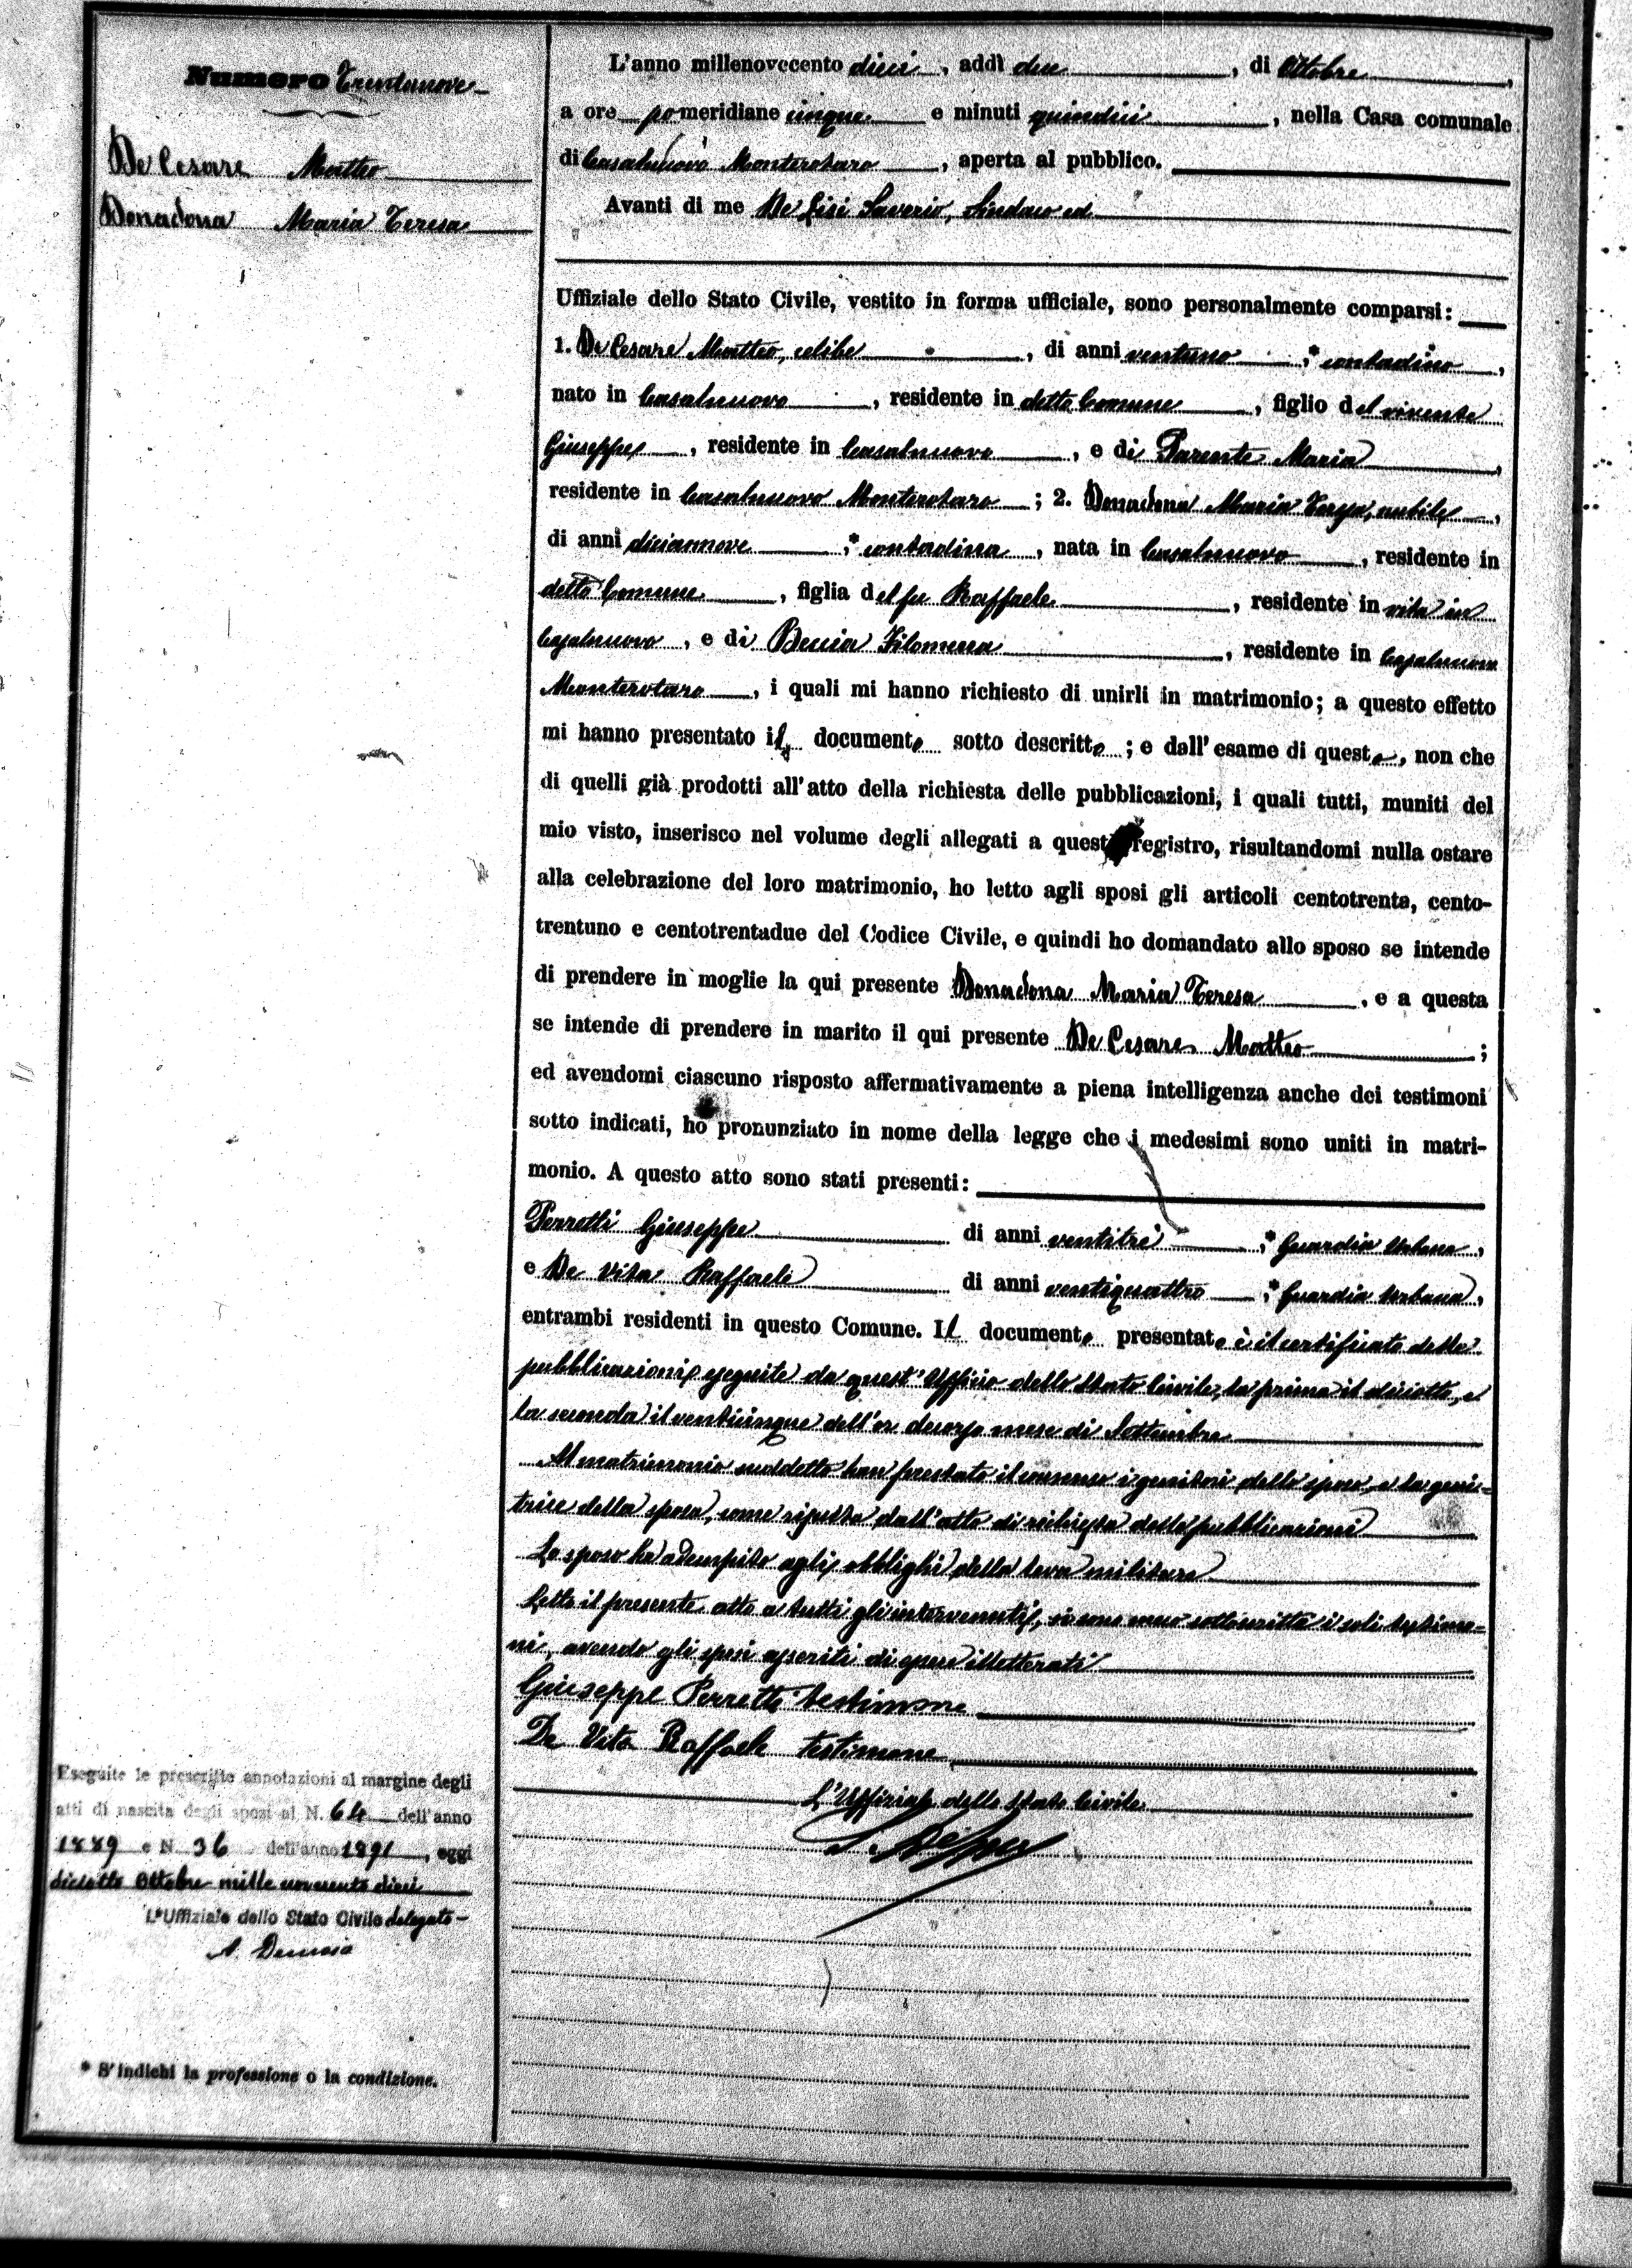 Numero Trentanove
De Cesare Matteo
Donadona Maria Teresa
L'anno millenovecento dieci, addì due, di Ottobre,
a ore pomeridiane cinque e minuti quindici, nella Casa comunale
di Casalnuovo Monterotaro, aperta al pubblico.
Avanti di me De Lisi Saverio, Sindaco ed
Uffiziale dello Stato Civile, vestito in forma ufficiale, sono personalmente comparsi:
1. De Cesare Matteo, celibe, di anni ventuno, * contadino,
nato in Casalnuovo, residente in detto Comune, figlio del vivente
Giuseppe, residente in Casalnuovo, e di Parente Maria,
residente in Casalnuovo Monterotaro; 2. Donadona Maria Teresa, nubile,
di anni diciannove, * contadina, nata in Casalnuovo, residente in
detto Comune, figlia del fu Raffaele, residente in vita in
Casalnuovo, e di Beccia Filomena, residente in Casalnuovo
Monterotaro, i quali mi hanno richiesto di unirli in matrimonio; a questo effetto
mi hanno presentato il documento sotto descritto; e dall'esame di questo, non che
di quelli già prodotti all'atto della richiesta delle pubblicazioni, i quali tutti, muniti del
mio visto, inserisco nel volume degli allegati a questo registro, risultandomi nulla ostare
alla celebrazione del loro matrimonio, ho letto agli sposi gli articoli centotrenta, cento-
trentuno e centotrentadue del Codice Civile, e quindi ho domandato allo sposo se intende
di prendere in moglie la qui presente Donadona Maria Teresa, e a questa
se intende di prendere in marito il qui presente De Cesare Matteo;
ed avendomi ciascuno risposto affermativamente a piena intelligenza anche dei testimoni
sotto indicati, ho pronunziato in nome della legge che i medesimi sono uniti in matri-
monio. A questo atto sono stati presenti:
Perrotti Giuseppe di anni ventitrè, * Guardia Urbana,
e De Vita Raffaele di anni ventiquattro, * Guardia Urbana,
entrambi residenti in questo Comune. Il documento presentato è il certificato delle
pubblicazioni eseguite da quest'Ufficio dello Stato Civile, la prima il diciotto, e
la seconda il venticinque dell'or decorso mese di Settembre
Al matrimonio suddetto han prestato il consenso i genitori dello sposo, e la geni-
trice della sposa, come risulta dall'atto di richiesta delle pubblicazioni
Lo sposo ha adempito agli obblighi della leva militare
Letto il presente atto a tutti gli intervenuti, si sono meco sottoscritti i soli testimo-
ni, avendo gli sposi asseriti di essere illetterati
Giuseppe Perrotti testimone
De Vita Raffaele testimone
L'Uffiziale dello Stato Civile
Eseguite le prescritte annotazioni al margine degli
atti di nascita degli sposi al N. 64 dell'anno
1889 e N. 36 dell'anno 1891, oggi
diciotto Ottobre mille novecento dieci
L'Uffiziale dello Stato Civile delegato
* S'indichi la professione o la condizione.